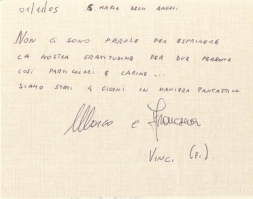 01/1/05 S MARIA DEGLI ANGELI
NON CI SONO PAROLE PER ESPRIMERE
LA NOSTRA GRATITUDINE PER DUE PERSONE
COSÌ PARTICOLARI E CARINE...
SIAMO STATI 4 GIORNI IN MANIERA FANTASTICA
Marco e Francesca
VINCI (FI)